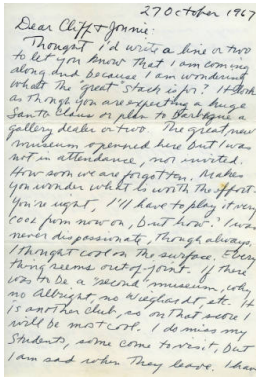 27 October 1967
Dear Cliff & Jonnie:
Thought i'd write a line or two
to let you know that I am coming
along and because I am wondering
what the "great" stack is for? It looks
as though you are expecting a huge
Santa Claus or plan to barbeque a
gallery dealer or two. The great new
museum opened here but I was
not in attendance, nor invited.
How soon we are forgotten. Makes
you wonder what is worth the effort.
You're right, I'll have to play it very
cool from now on, but how? I was
never dispassionate, though always,
I thought cool on the surface. Every
thing seems out of joint. If there
was to be a "second" museum, why
no Albright, no Wieghardt, etc. It
is another club, so on that score I
will be most cool. I do miss my
students, some come to visit, but
I am sad when they leave. I have